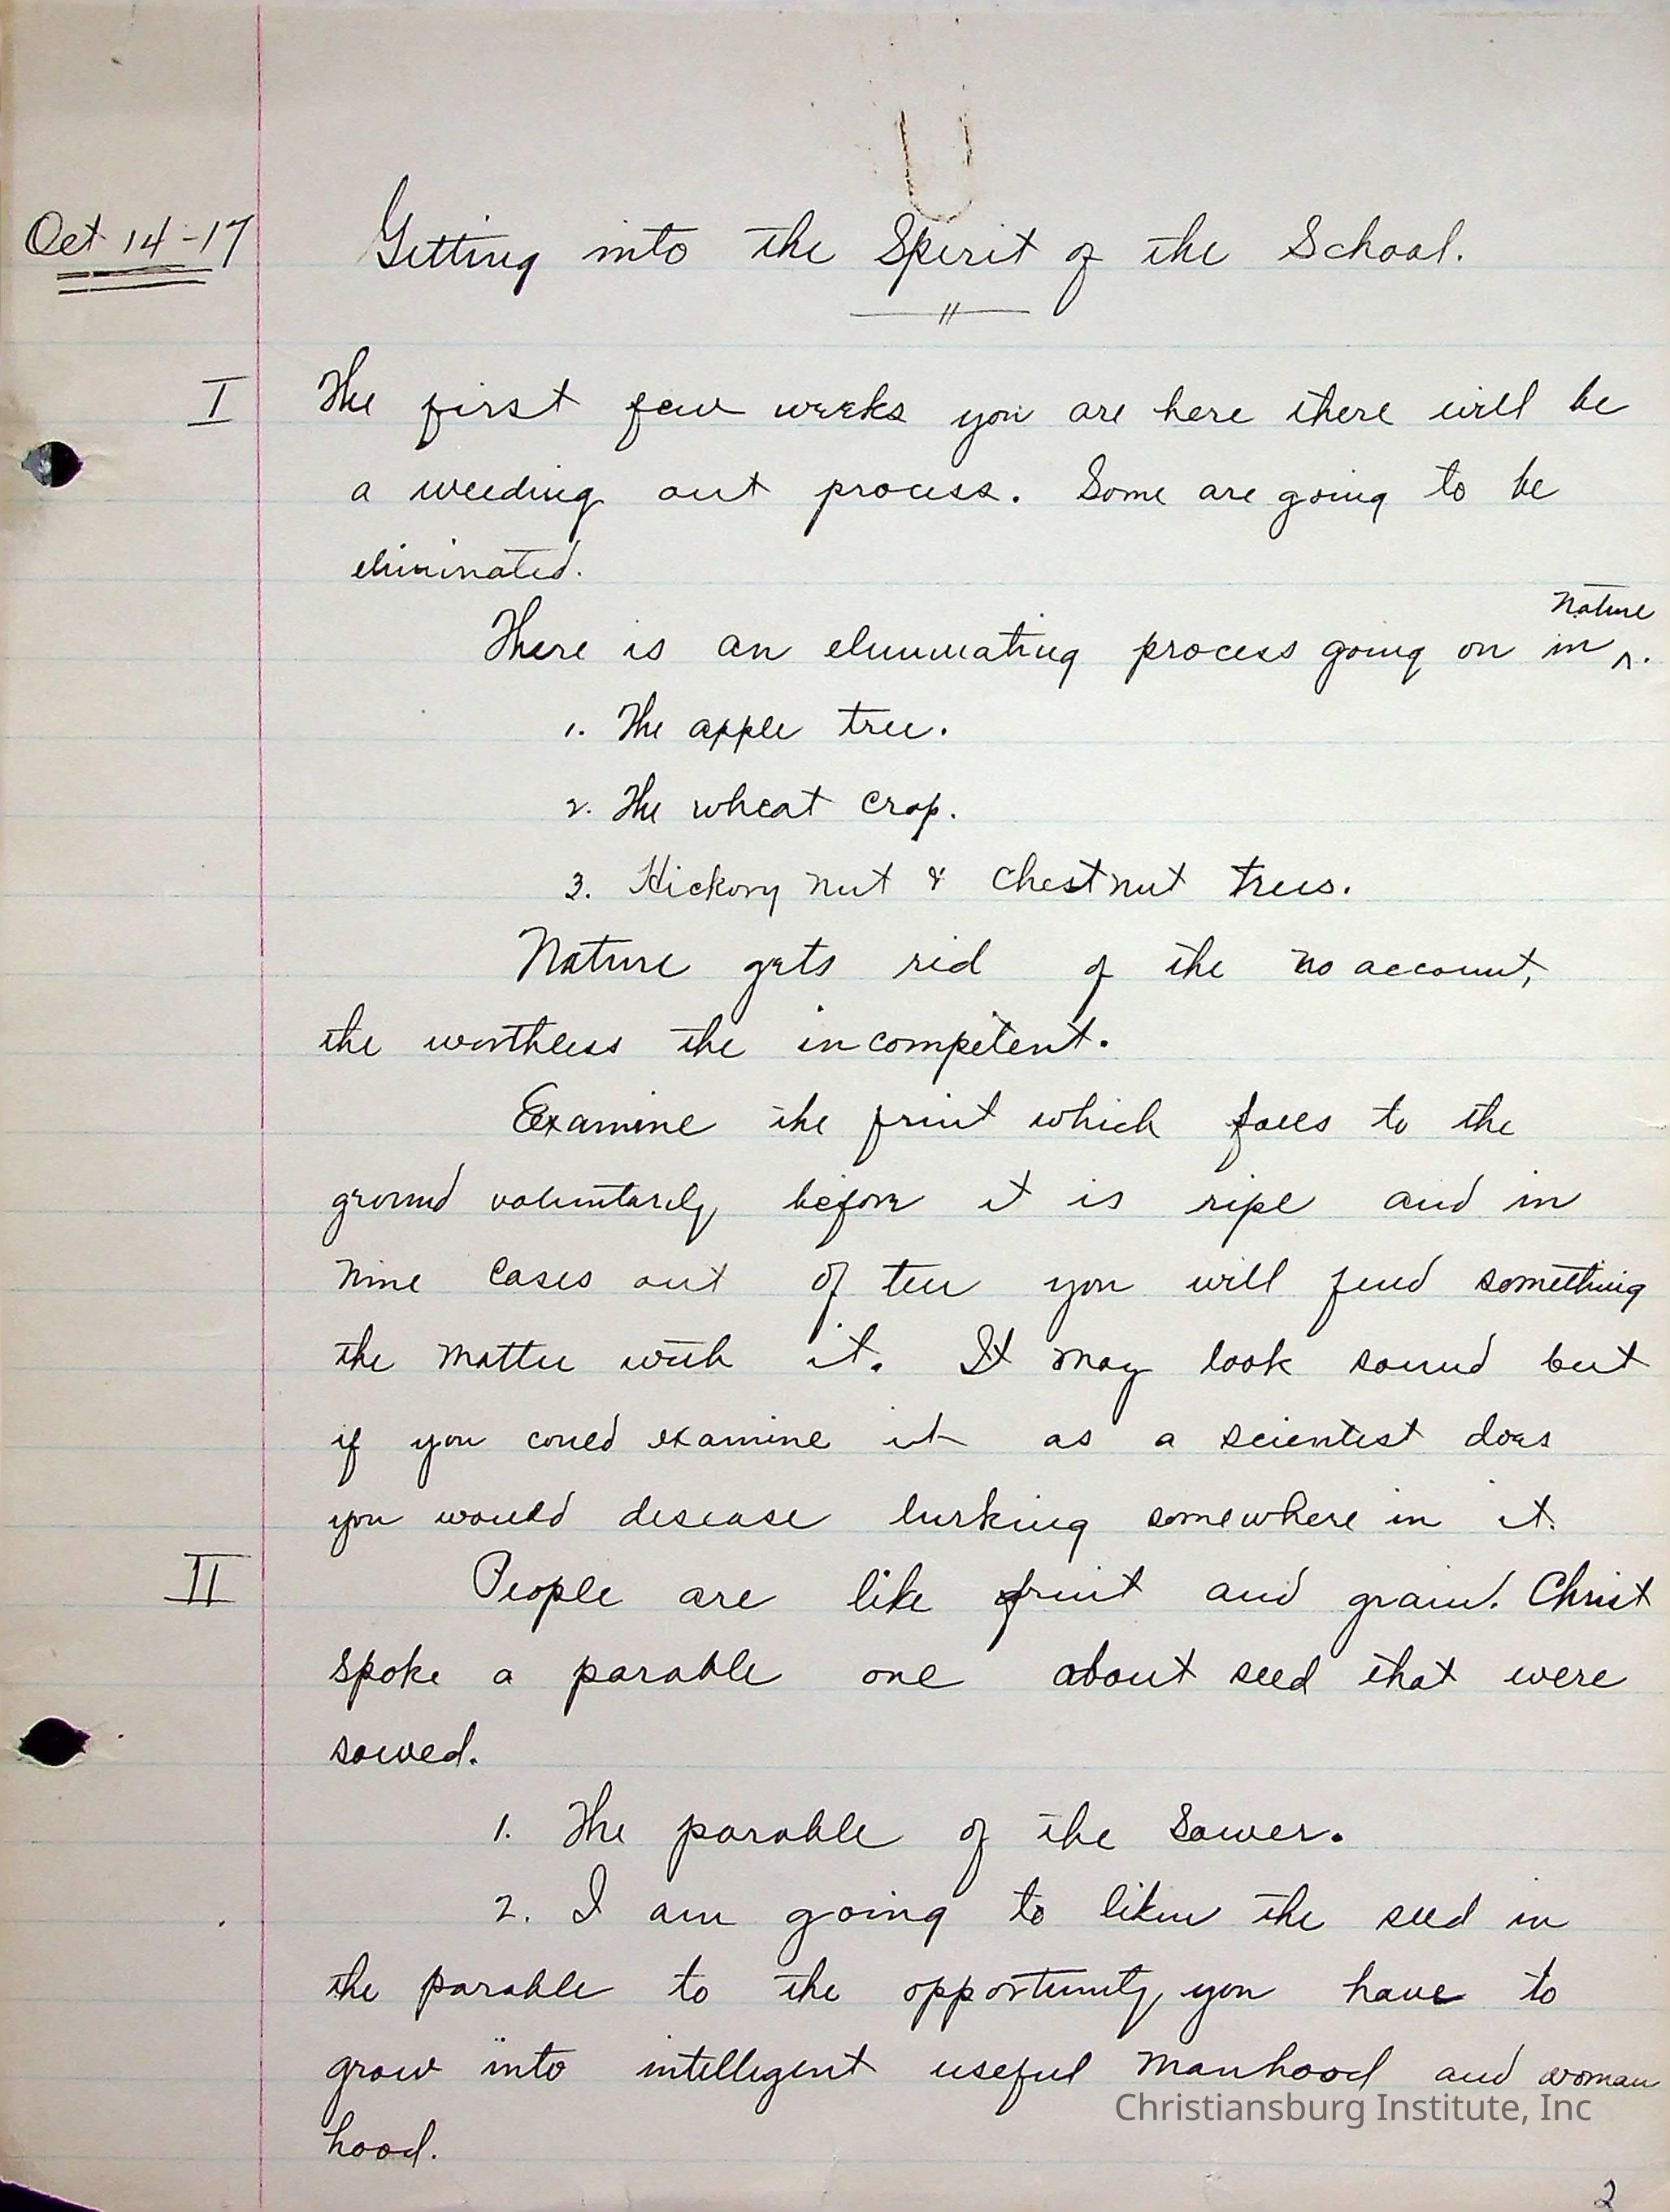 Oct 14-17
Getting into the Spirit of the School.
I The first few weeks you are here there will be
a weeding out process. Some are going to be
eliminated.
Nature
There is an eliminating process going on in ^.
1. The apple tree.
2. The wheat crop.
3. Hickory nut & Chestnut trees.
Nature gets rid of the no account,
the worthless the incompetent.
Examine the fruit which falls to the
ground voluntarily before it is ripe and in
nine cases out of ten you will find something
the matter with it. It may look sound but
if you could examine it as a scientist does
you would disease lurking somewhere in it.
II People are like fruit and grain. Christ
spoke a parable one about seed that were
sowed.
1. The parable of the Sower.
2. I am going to liken the seed in
the parable to the opportunity you have to
grow into intelligent useful manhood and woman
hood.
Christiansburg Institute, Inc
2